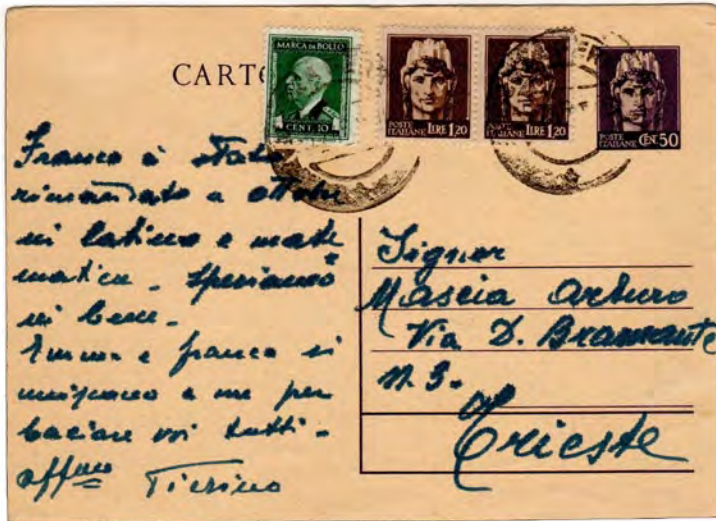 CARTO
MARCA DA BOLLO
CENT. 10
POSTE ITALIANE LIRE 1,20
POSTE ITALIANE LIRE 1,20
POSTE ITALIANE CENT 50
Franco è stato
rimandato a ottobre
in latino e mate
matica. Speriamo
in bene.
Emma e Franco si
uniscono a me per
baciare voi tutti -
affmo Tierino
Signor
Mascia Arturo
Via D. Bramante
N. 3.
Trieste